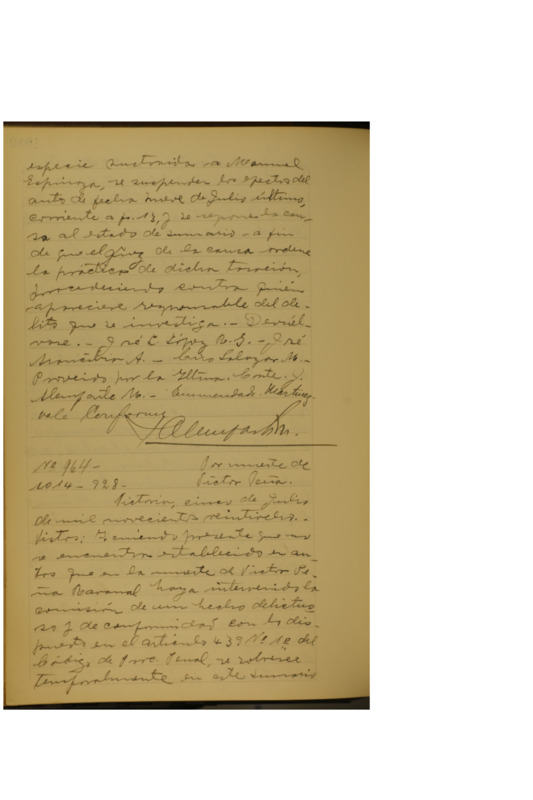 especie sustraida a Manuel
Espinoza, se suspenden los efectos del
auto de fecha nueve de Julio último,
corriente a fs. 13, y se repone la cau-
sa al estado de sumario a fin
de que el Juez de la causa ordene
la práctica de dicha tasación,
procediendo contra quién
apareciere responsable del de-
lito que se investiga.- Devuél-
vase.- José C. López U. G.- José
A.- Luis Salazar M.-
Proveido por la Iltma. Corte. J.
Alemparte M.- Enmendado.
vale Conforme
J Alemparte M.
No 964-
Por muerte de
1014 - 928-
Victor Peña.
Victoria, cinco de Julio
de mil novecientos veintiocho.-
Vistos: Teniendo presente que no
se encuentra establecido en au-
tos que en la muerte de Victor Pe-
ña haya intervenido la
comisión de un hecho delictuo
so y de conformidad con lo dis-
puesto en el articulo 439 No 1o del
Código de Proc. Penal, se sobresee
temporalmente en este sumario